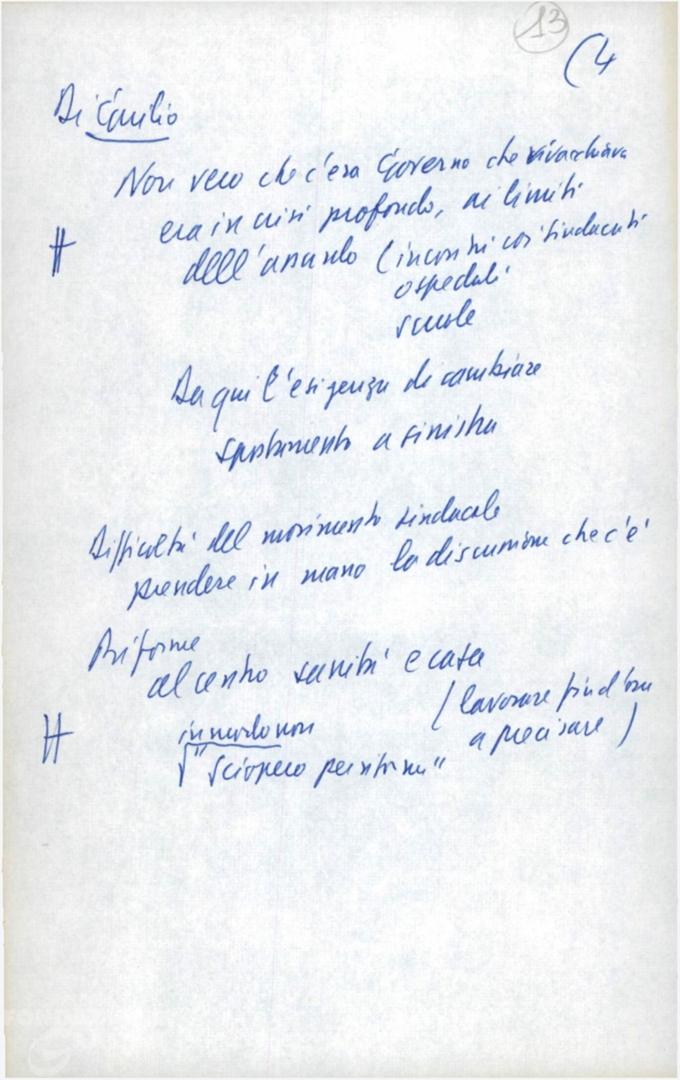 13
(4
Di Giulio
Non vero che c'era Governo che vivacchiava
era in crisi profondo, ai limiti
dell'assurdo (incontri coi sindacati
ospedali
scuole
Da qui l'esigenza di cambiare
spostamento a sinistra
Difficoltà del movimento sindacale
prendere in mano la discussione che c'è
Riforme
al centro sanità e casa
(lavorare fin d'ora
a precisare)
in modo non
"Sciopero per riforme"